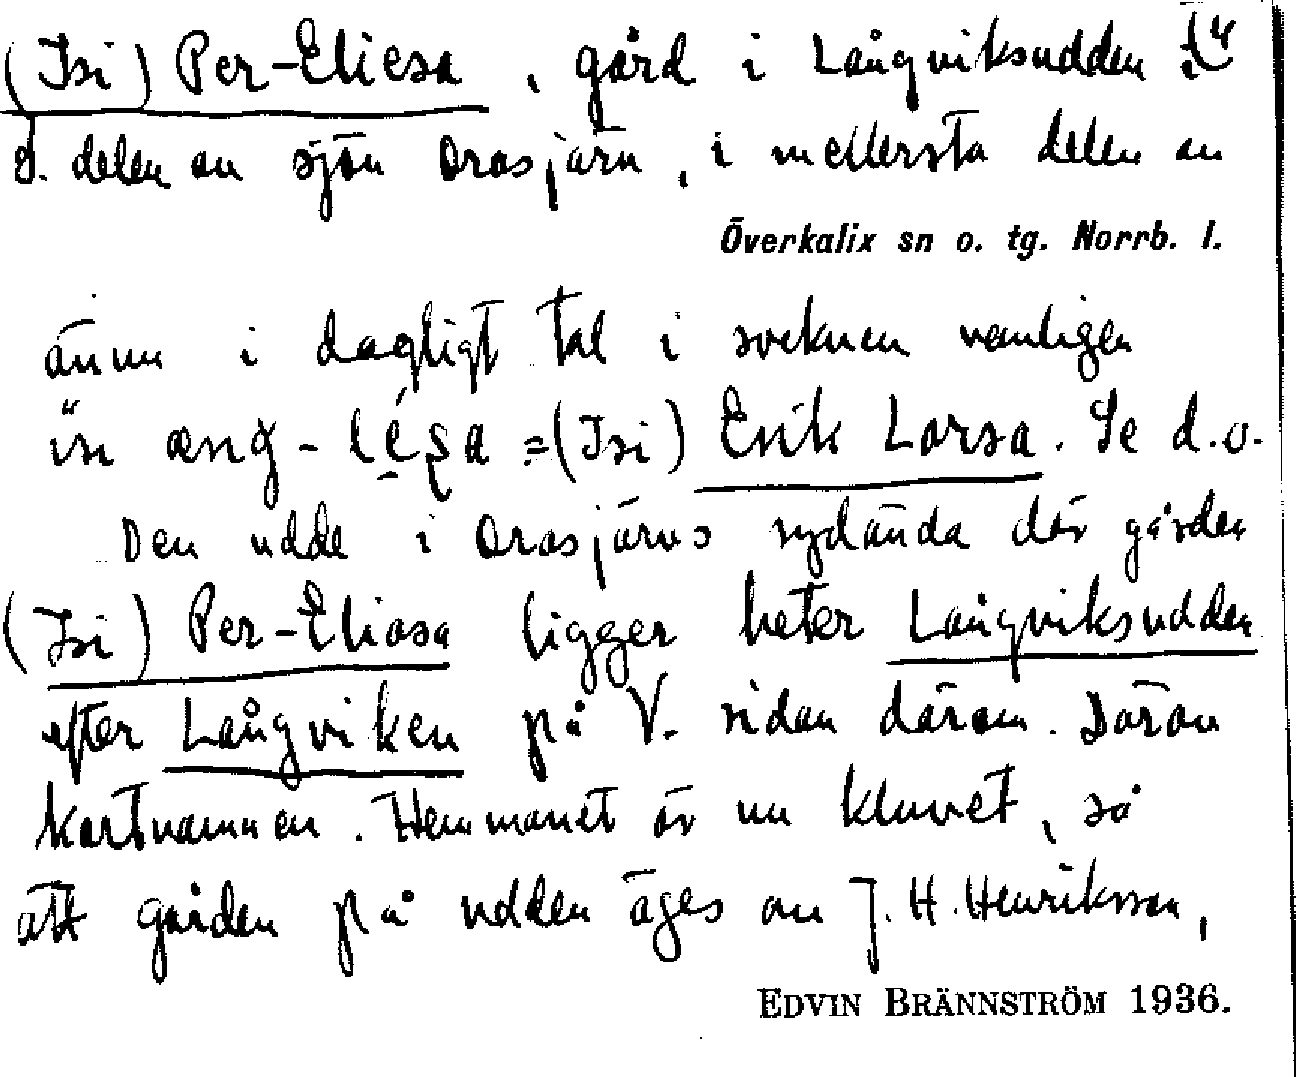 (Isi) Per-Eliesa, gård i Långviksudden i
ö. delen av sjön Orasjärv, i mellersta delen av
Överkalix sn o. tg. Norrb. l.
ännu i dagligt tal i socknen vanligen
än æŋg-lésa =(Isi) Erik Larsa. Se d.o.
Den udde i Orasjärvs sydända där gården
(Isi) Per-Eliasa ligger heter Långviksudden
efter Långviken på V. sidan därom. Därav
kartnamnen. Hemmanet är nu kluvet, så
att gården på udden äges av J. H. Henriksson,
EDVIN BRÄNNSTRÖM 1936.